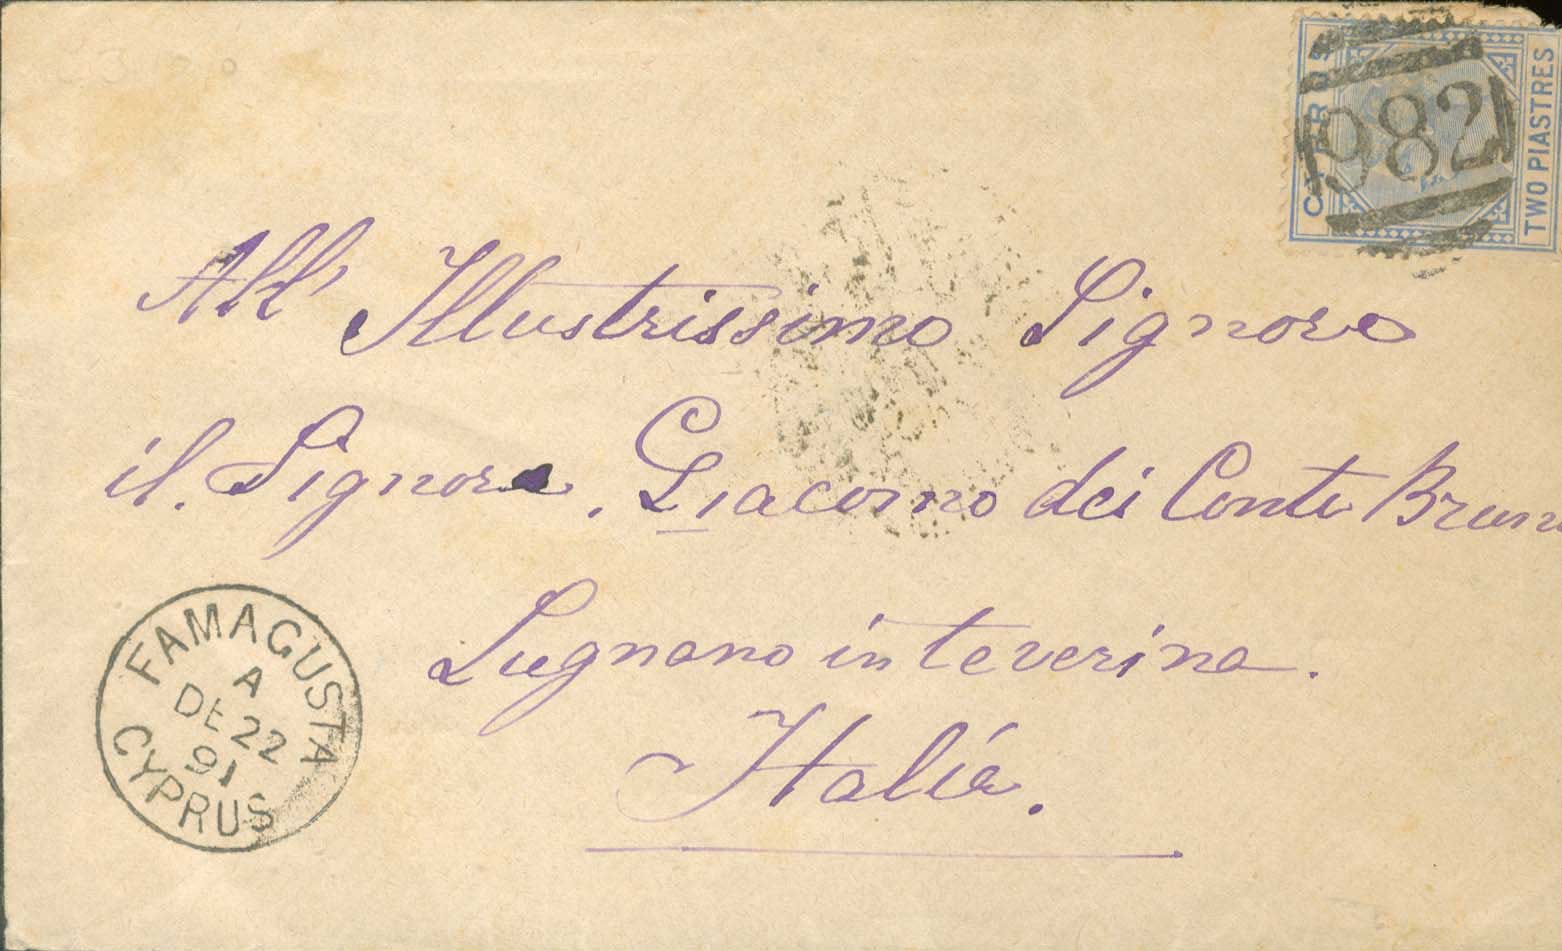 CYPRUS
TWO PIASTRES
982
All' Illustrissimo Signore
il. Signore. Giacomo dei Conti Brun
Lugnano in teverina.
Italia.
FAMAGUSTA
A
DE 22
91
CYPRUS